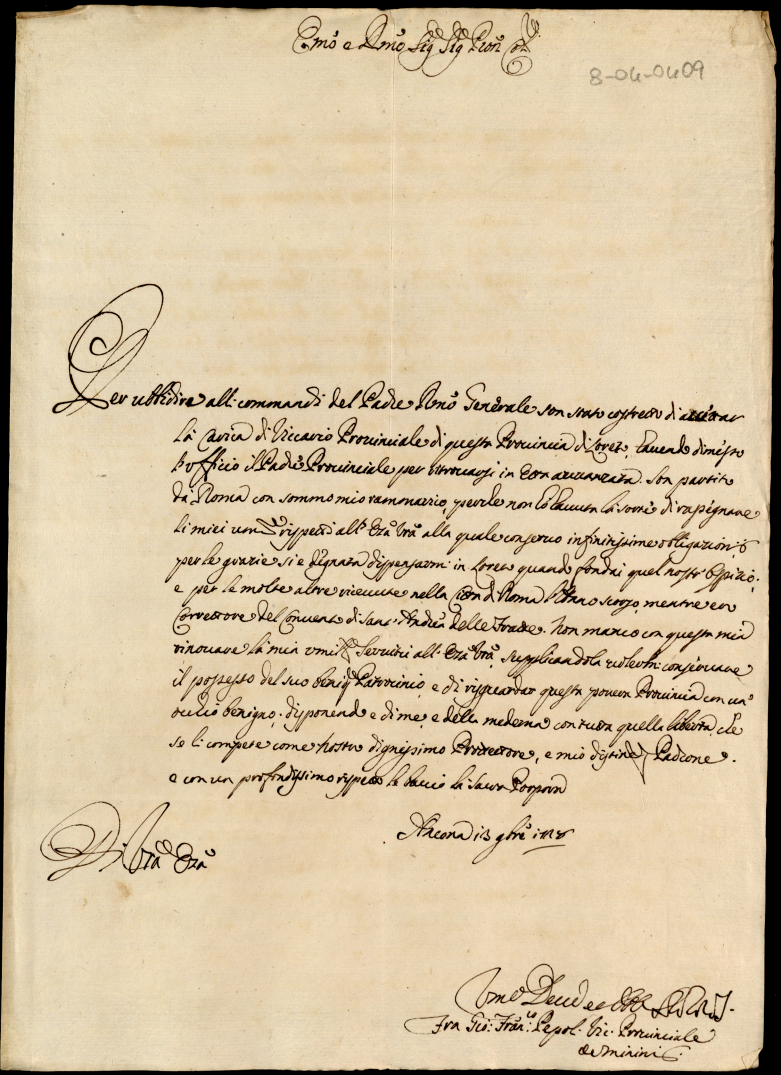 Emo e Rmo Sig Sig Pron
8-04-0409
Per ubbidire alli commandi del Padre Rmo Generale son stato costretto di
la carica di Viccario Provinciale di questa Provincia di Loreto, havendo dimesso
l'ufficio il Padre Provinciale per ritrovarsi in età avvanzata. Son partito
da Roma con sommo mio ramarico, perche non hò havuta la sorte di rasegnare
li miei umi rispetti all' Eza Vra alla quale conservo infinitissime obligazioni, e
per le grazie si è degnata dispensarmi in Loreto quando fondai quel nostro Ospizio,
e per le molte altre ricevute nella Città di Roma l'Anno scorso, mentre ero
Correttore del Convento di Sant' Andrea delle Fratte. Non manco con questa mia
rinovare la mia umil Servitù all' Eza Vra, supplicandola volermi conservare
il possesso del suo benig Patrocinio, e di risguardar questa povera Provincia con un'
occhio benigno, disponendo e di me, e della medema con tutta quella libertà, che
se li compete come nostro dignissimo Protettore, e mio distin Padrone.
e con un profondissimo rispetto le baccio la Sacra Porpora
Ancona 13 9bre
Di Vra Eza
Umo Devo ed Obb
Fra Gio: Franco Pepoli Vic. Provinciale
de Minimi